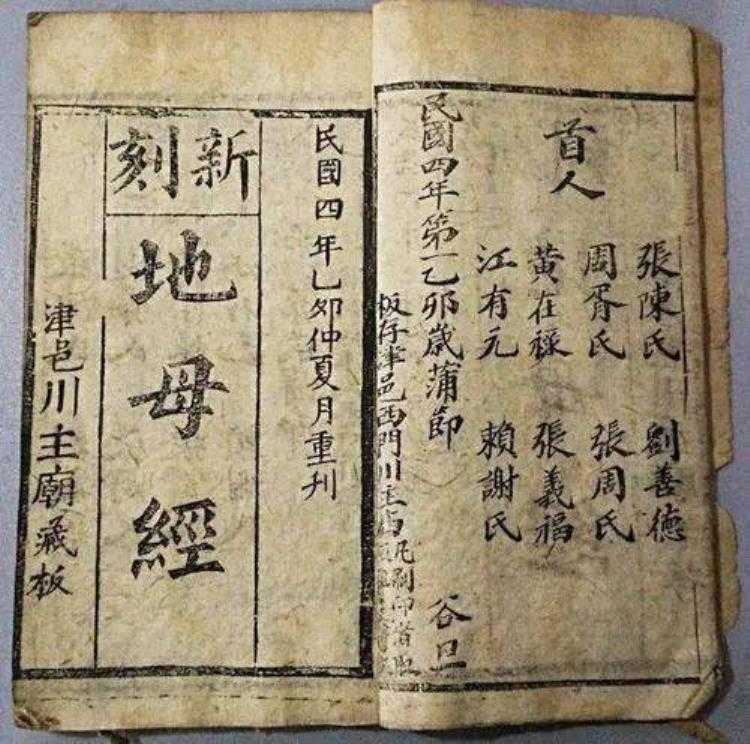 首人
張陳氏 劉善德
周胥氏 張周氏
黃在祿 張義福
江有元 賴謝氏
民國四年第一乙卯歲蒲節 谷旦
板存津邑西門川主庙 凡刷印者
民國四年乙夘仲夏月重刊
新刻
地母經
津邑川主廟藏板